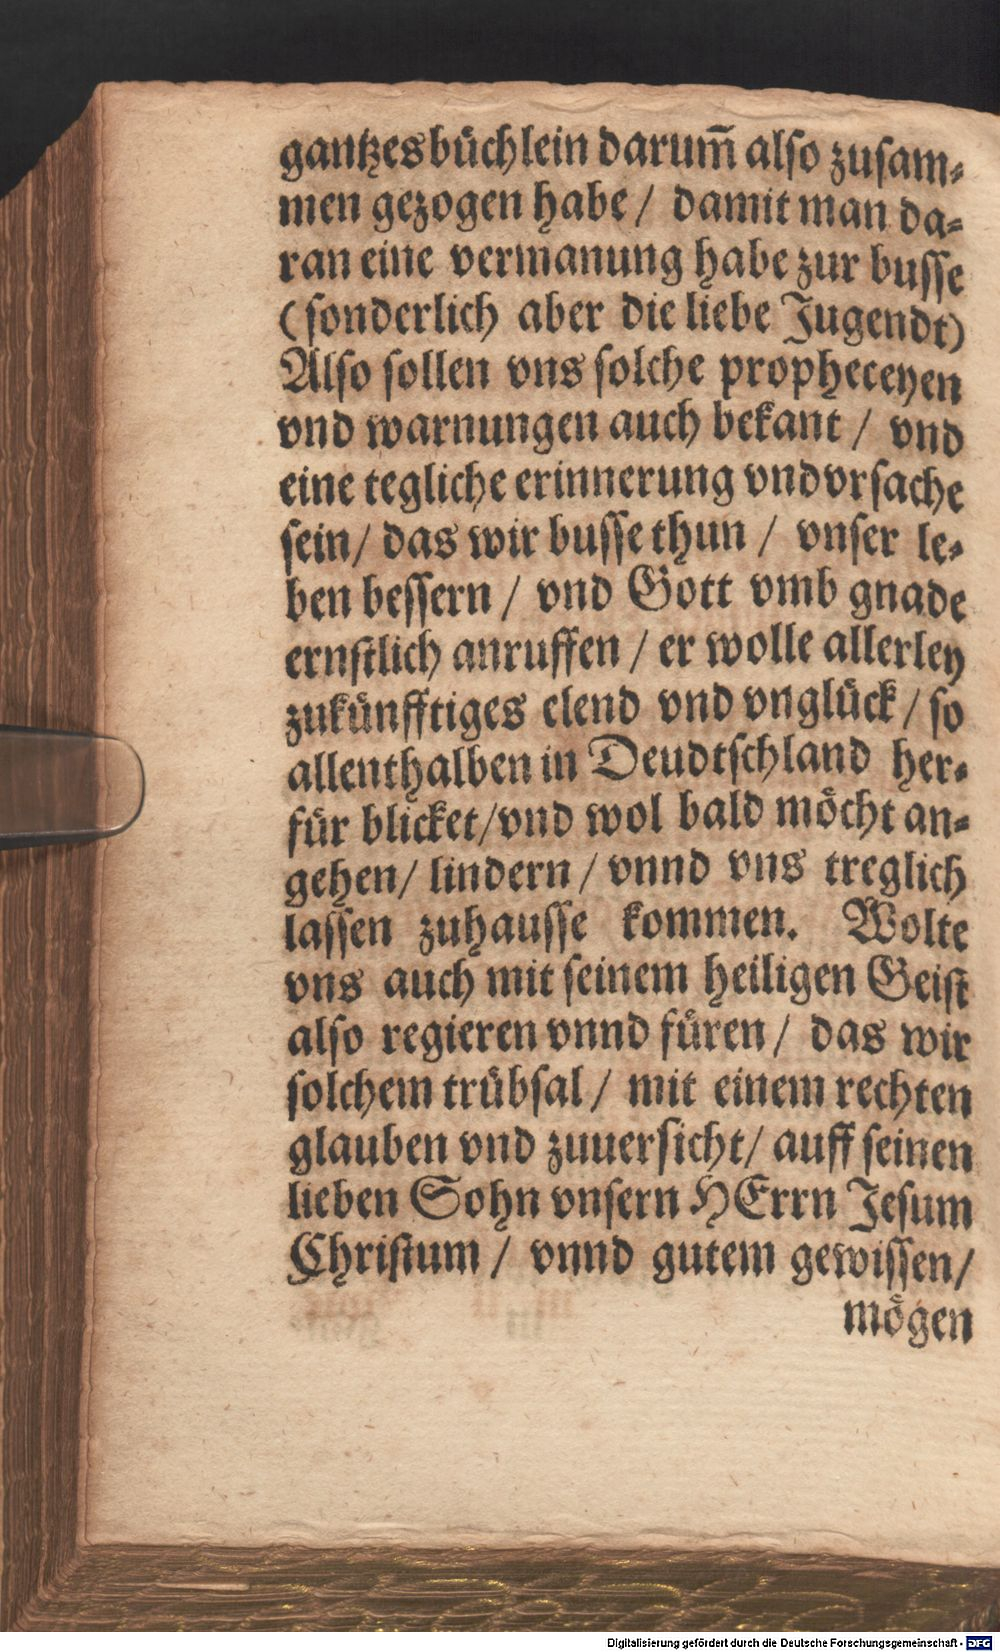 gantzes büchlein darum̄ also zusam-
men gezogen habe / damit man da-
ran eine vermanung habe zur busse
(sonderlich aber die liebe Jugendt)
Also sollen vns solche propheceyen
vnd warnungen auch bekant / vnd
eine tegliche erinnerung vnd vrsache
sein / das wir busse thun / vnser le-
ben bessern / vnd Gott vmb gnade
ernstlich anruffen / er wolle allerley
zukünfftiges elend vnd vnglück / so
allenthalben in Deudtschland her-
für blicket / vnd wol bald möcht an-
gehen / lindern / vnnd vns treglich
lassen zuhausse kommen. Wolte
vns auch mit seinem heiligen Geist
also regieren vnnd füren / das wir
solchem trübsal / mit einem rechten
glauben vnd zuuersicht / auff seinen
lieben Sohn vnsern HErrn Jesum
Christum / vnnd gutem gewissen /
mögen
Digitalisierung gefördert durch die Deutsche Forschungsgemeinschaft - DFG